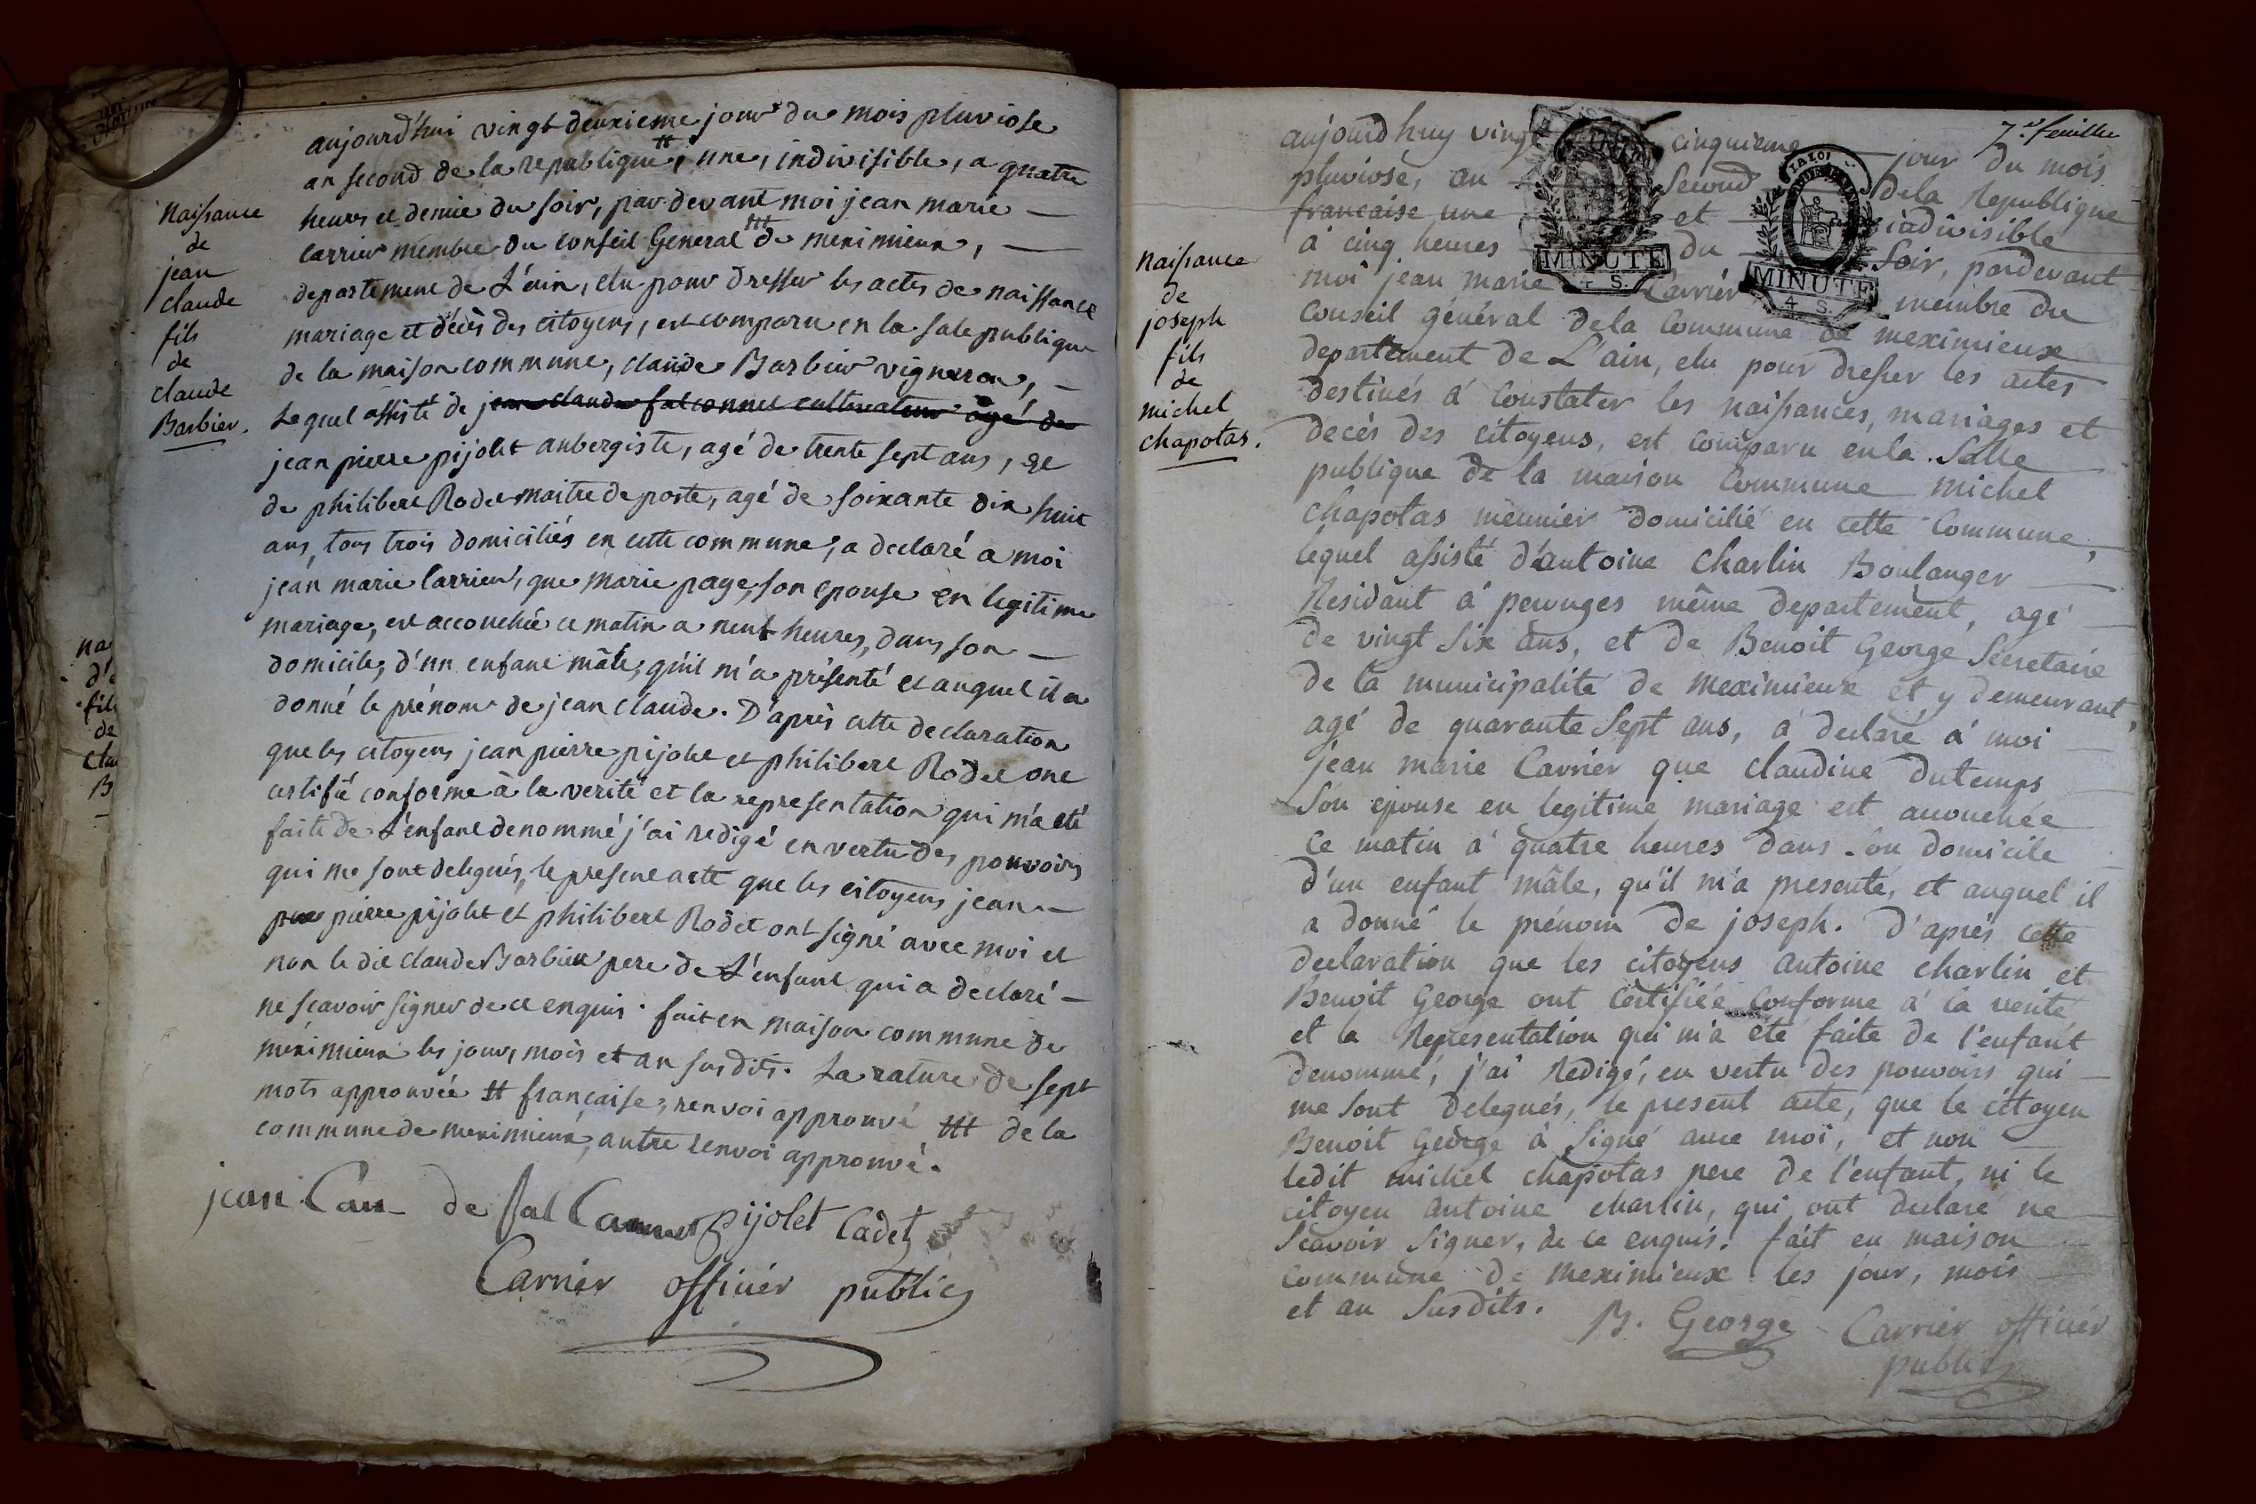 aujourd'hui vingt deuxieme jour du mois pluviose
an second de la republique #, une, indivisible, a quatre
heures et demie du soir, par devant moi jean marie
carrier membre du conseil General ## de meximieux,
departement de L'ain, elu pour dresser les actes de naissance
mariage et décès des citoyens, est comparu en la sale publique
de la maison commune, claude Barbier vigneron,
Lequel assisté de jean claude falconnet cultivateur agé de
jean pierre pijolet aubergiste, agé de trente sept ans, et
de philibert Rodet maitre de poste, agé de soixante dix huit
ans, tous trois domiciliés en cette commune, a declaré a moi
jean marie Carrier, que marie page, son epouse en legitime
mariage, est accouchée ce matin a neuf heures, dans son
domicile, d'un enfant mâle, qu'il m'a présenté et auquel il a
donné le prénom de jean claude. D'après cette declaration
que les citoyens jean pierre pijolet et philibert Rodet ont
certifié conforme à la verité et la representation qui m'a eté
faite de L'enfant denommé j'ai redigé en vertu des pouvoirs
qui me sont delegués, le present acte que les citoyens jean
pierre pijolet et philibert Rodet ont signé avec moi et
non le dit claude Barbier pere de L'enfant qui a declaré
ne scavoir signer de ce enquis. fait en maison commune de
meximieux les jour, mois et an susdits. La rature de sept
mots approuvée # française, renvoi approuvé ## de la
commune de meximieux, autre renvoi approuvé.
pijolet Cadet
Carrier officier public
Naissance
de
jean
claude
fils
de
claude
Barbier.
7e feuillet
aujourd huy vingt cinquieme jour du mois
pluviose, an second de la Republique
francaise une et indivisible
à cinq heures du soir, pardevant
moi jean marie Carrier membre du
Conseil général de la Commune de meximieux
departement de L'ain, elu pour dresser les actes
destinés à constater les naissances, mariages et
decès des citoyens, est comparu en la salle
publique de la maison commune michel
chapotas meunier domicilié en cette commune,
lequel assisté d'antoine charlin Boulanger
Residant à perouges même departement, agé
de vingt six ans, et de Benoit George Secretaire
de la municipalité de meximieux et y demeurant,
agé de quarante sept ans, a declaré à moi
jean marie Carrier que claudine dutemps
son epouse en legitime mariage est accouchée
ce matin à quatre heures dans son domicile
d'un enfant mâle, qu'il m'a presenté, et auquel il
a donné le prénom de joseph. D'après cette
declaration que les citoyens antoine charlin et
Benoit George ont certifiée conforme à la verité
et la Representation qui m'a eté faite de l'enfant
denommé, j'ai Redigé, en vertu des pouvoirs qui
me sont delegués, le present acte, que le citoyen
Benoit George à signé avec moi, et non
ledit michel chapotas pere de l'enfant, ni le
citoyen antoine charlin, qui ont declaré ne
scavoir signer, de ce enquis. fait en maison
commune de meximieux les jour, mois
et an susdits.
B. George Carrier officier
public
Naissance
de
joseph
fils
de
michel
chapotas.
MINUTE
4 S.
LA LOI
MINUTE
4 S.